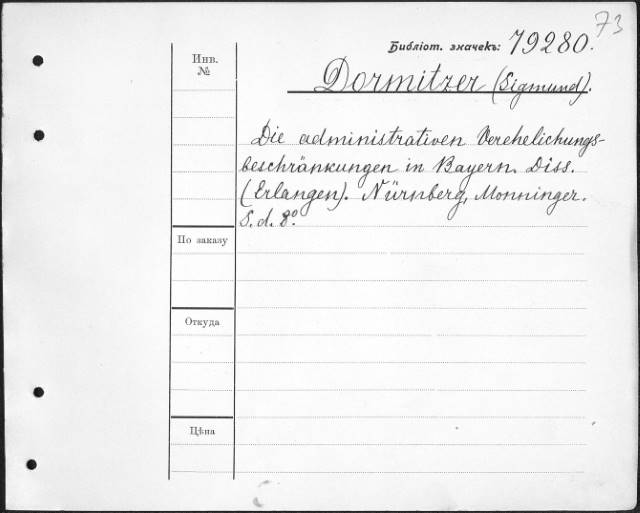 73
Библіот. значекъ: 79280.
Инв.
№
Dormitzer (Sigmund).
Die administrativen Verehelichungs-
beschränkungen in Bayern. Diss.
(Erlangen). Nürnberg, Monninger.
S.d. 8°.
По заказу
Откуда
Цѣна